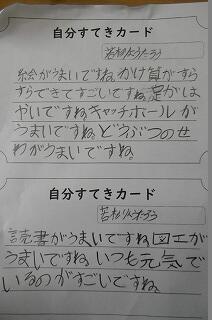 自分すてきカード
絵がうまいですね。かけ算がすら
すらできてすごいですね。足がは
やいですね。キャッチボールが
うまいですね。どうぶつのせ
わがうまいですね。
自分すてきカード
読書がうまいですね。図工が
うまいですね。いつも元気で
いるのがすごいですね。